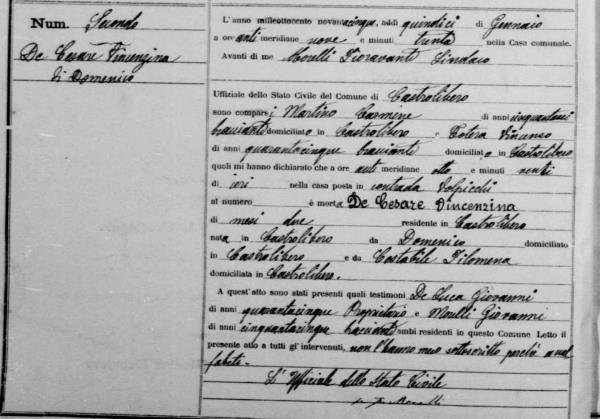 Num. Secondo
De Cesare Vincenzina
di Domenico
L'anno milleottocento novantacinque, addì quindici di Gennaio
a ore anti meridiane nove e minuti trenta nella Casa comunale.
Avanti di me Morelli Fioravante Sindaco
Uffiziale dello Stato Civile del Comune di Castrolibero
sono comparsi Martino Carmine di anni cinquantasei
bracciante domiciliato in Castrolibero e Potera Vincenzo
di anni quarantacinque bracciante domiciliato in Castrolibero
quali mi hanno dichiarato che a ore anti meridiane otto e minuti venti
di ieri nella casa posta in contrada
al numero è morta De Cesare Vincenzina
di mesi due residente in Castrolibero
nata in Castrolibero da Domenico domiciliato
in Castrolibero e da Costabile Filomena
domiciliata in Castrolibero.
A quest'atto sono stati presenti quali testimoni De Luca Giovanni
di anni quarantacinque Proprietario e Giovanni
di anni cinquantacinque bracciante ambi residenti in questo Comune Letto il
presente atto a tutti gl'intervenuti, non l'hanno meco sottoscritto perchè anal
fabeti.
L'Uffiziale dello Stato Civile